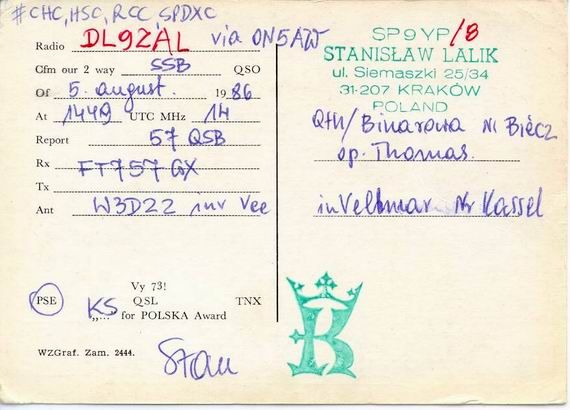 #CHC, HSC, RCC SPDXC
Radio DL9ZAL via ON5AW
Cfm our 2 way SSB QSO
Of 5. august. 1986
At 1449 UTC MHz 14
Report 57 QSB
Rx FT757GX
Tx
Ant W3DZZ inv Vee
Vy 73!
PSE QSL TNX
KS
„... for POLSKA Award
WZGraf. Zam. 2444.
Stan
SP9YP/8
STANISŁAW LALIK
ul. Siemaszki 25/34
31-207 KRAKÓW
POLAND
Qth/ Binarowa Nr Biecz
op. Thomas
in Vellmar Nr Kassel
K